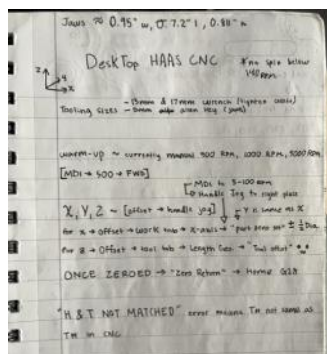 Jaws ≈ 0.95" w, 7.2" l, 0.88" h
DeskTop HAAS CNC
*no spin below
140 RPM
Z
Y
X
Tooling sizes - 15mm & 17mm wrench
allen key
warm-up ~ currently manual 500 RPM, 1000 RPM, 5000 RPM
[MDI → 500 → FWD]
→ MDI to 5-100 RPM
→ Handle Jog to right place
X, Y, Z ~ [offset → handle jog]
Y is same as X
for X → Offset → work tab → X-axis → "part zero set" ± 1/2 Dia.
for Z → Offset → tool tab → Length → "Tool offset"
ONCE ZEROED → "Zero Return" → Home G28
"H & T NOT MATCHED" error means T# not same as
T# in CNC